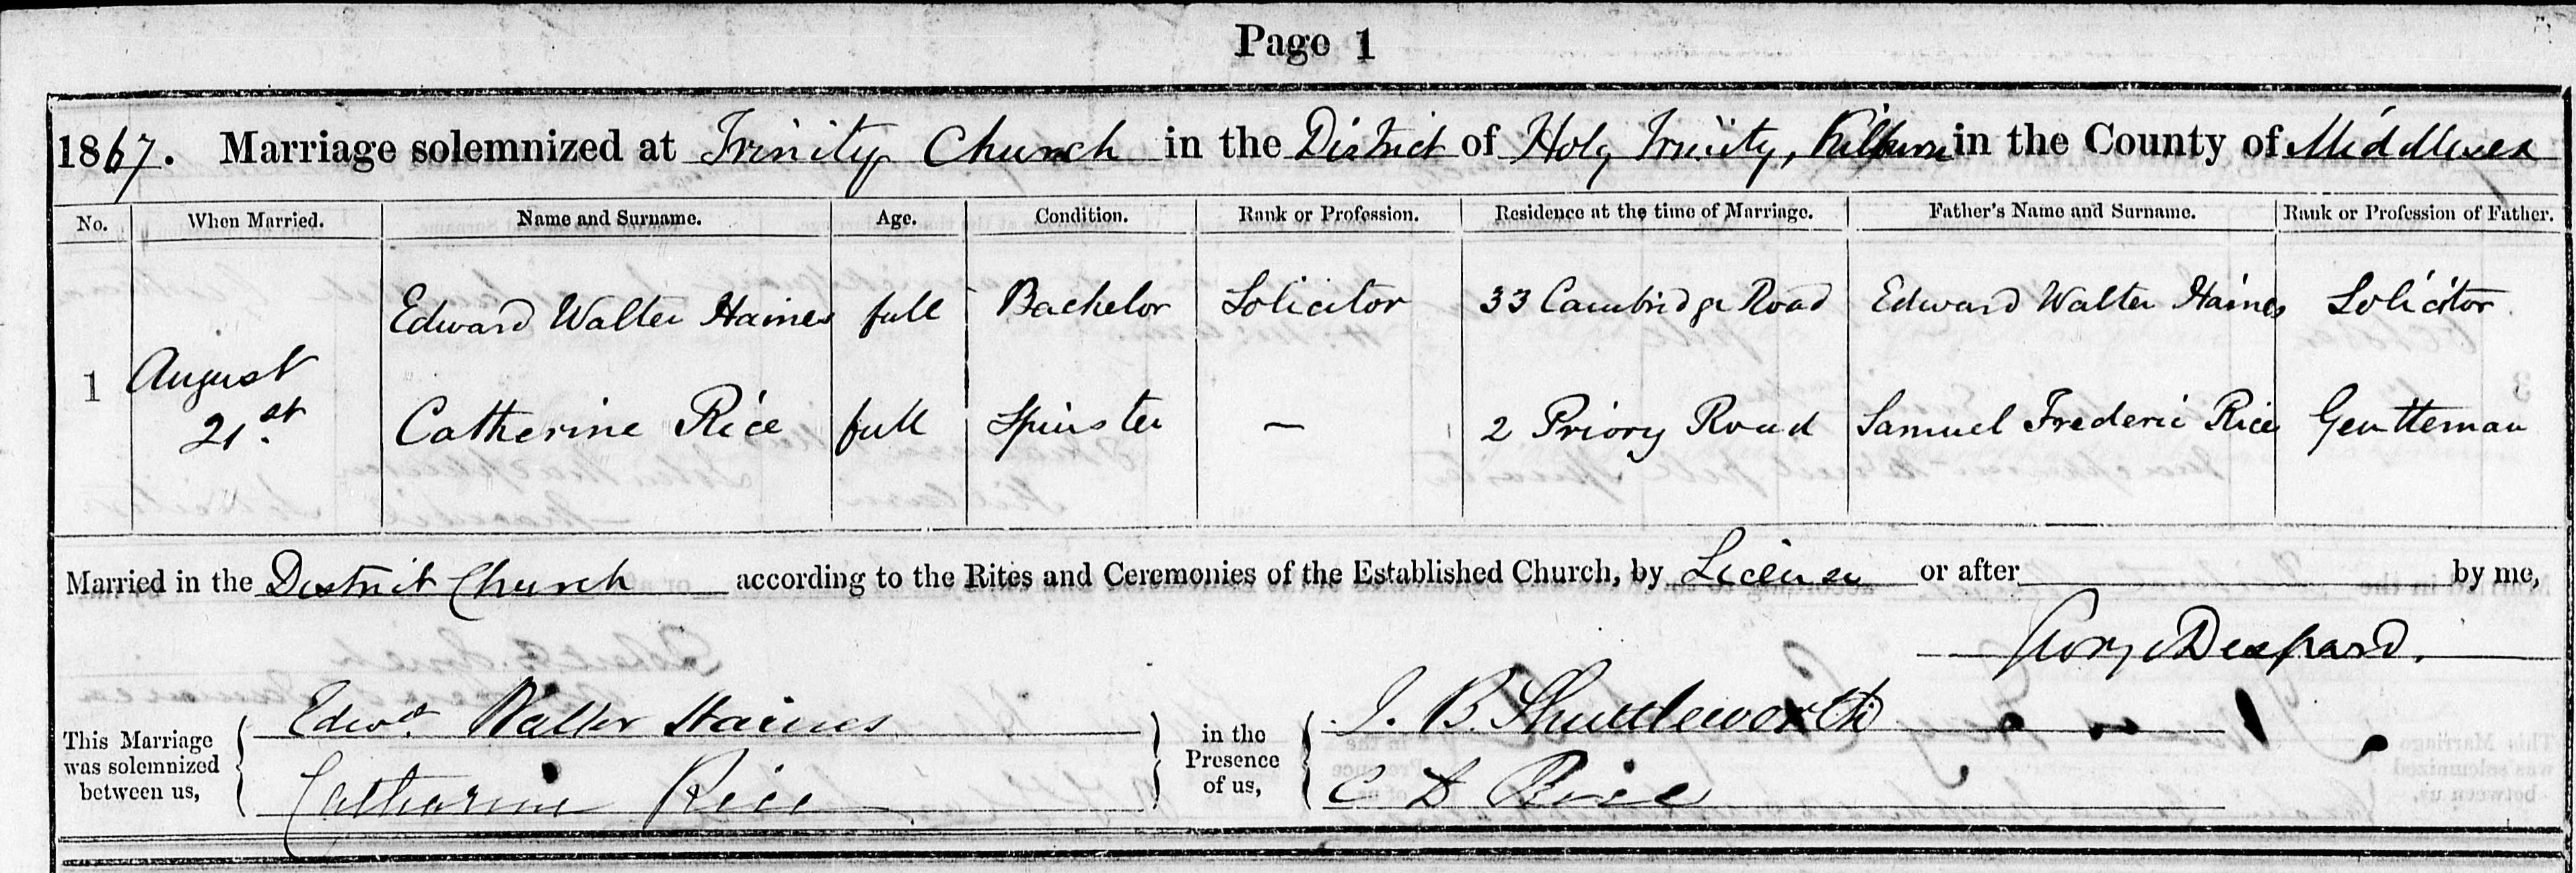 Page 1
1867. Marriage solemnized at Trinity Church in the District of Holy Trinity, Kilburn in the County of Middlesex
No. When Married. Name and Surname. Age. Condition. Rank or Profession. Residence at the time of Marriage. Father's Name and Surname. Rank or Profession of Father.
Edward Walter Haines full Bachelor Solicitor 33 Cambridge Road Edward Walter Haines Solicitor
1 August
21st Catherine Rice full Spinster — 2 Priory Road Samuel Frederic Rice Gentleman
Married in the District Church according to the Rites and Ceremonies of the Established Church, by License or after by me,
George Despard.
This Marriage was solemnized between us, Edwd. Walter Haines in the Presence of us, J. B. Shuttleworth
Catharine Rice C D Rice